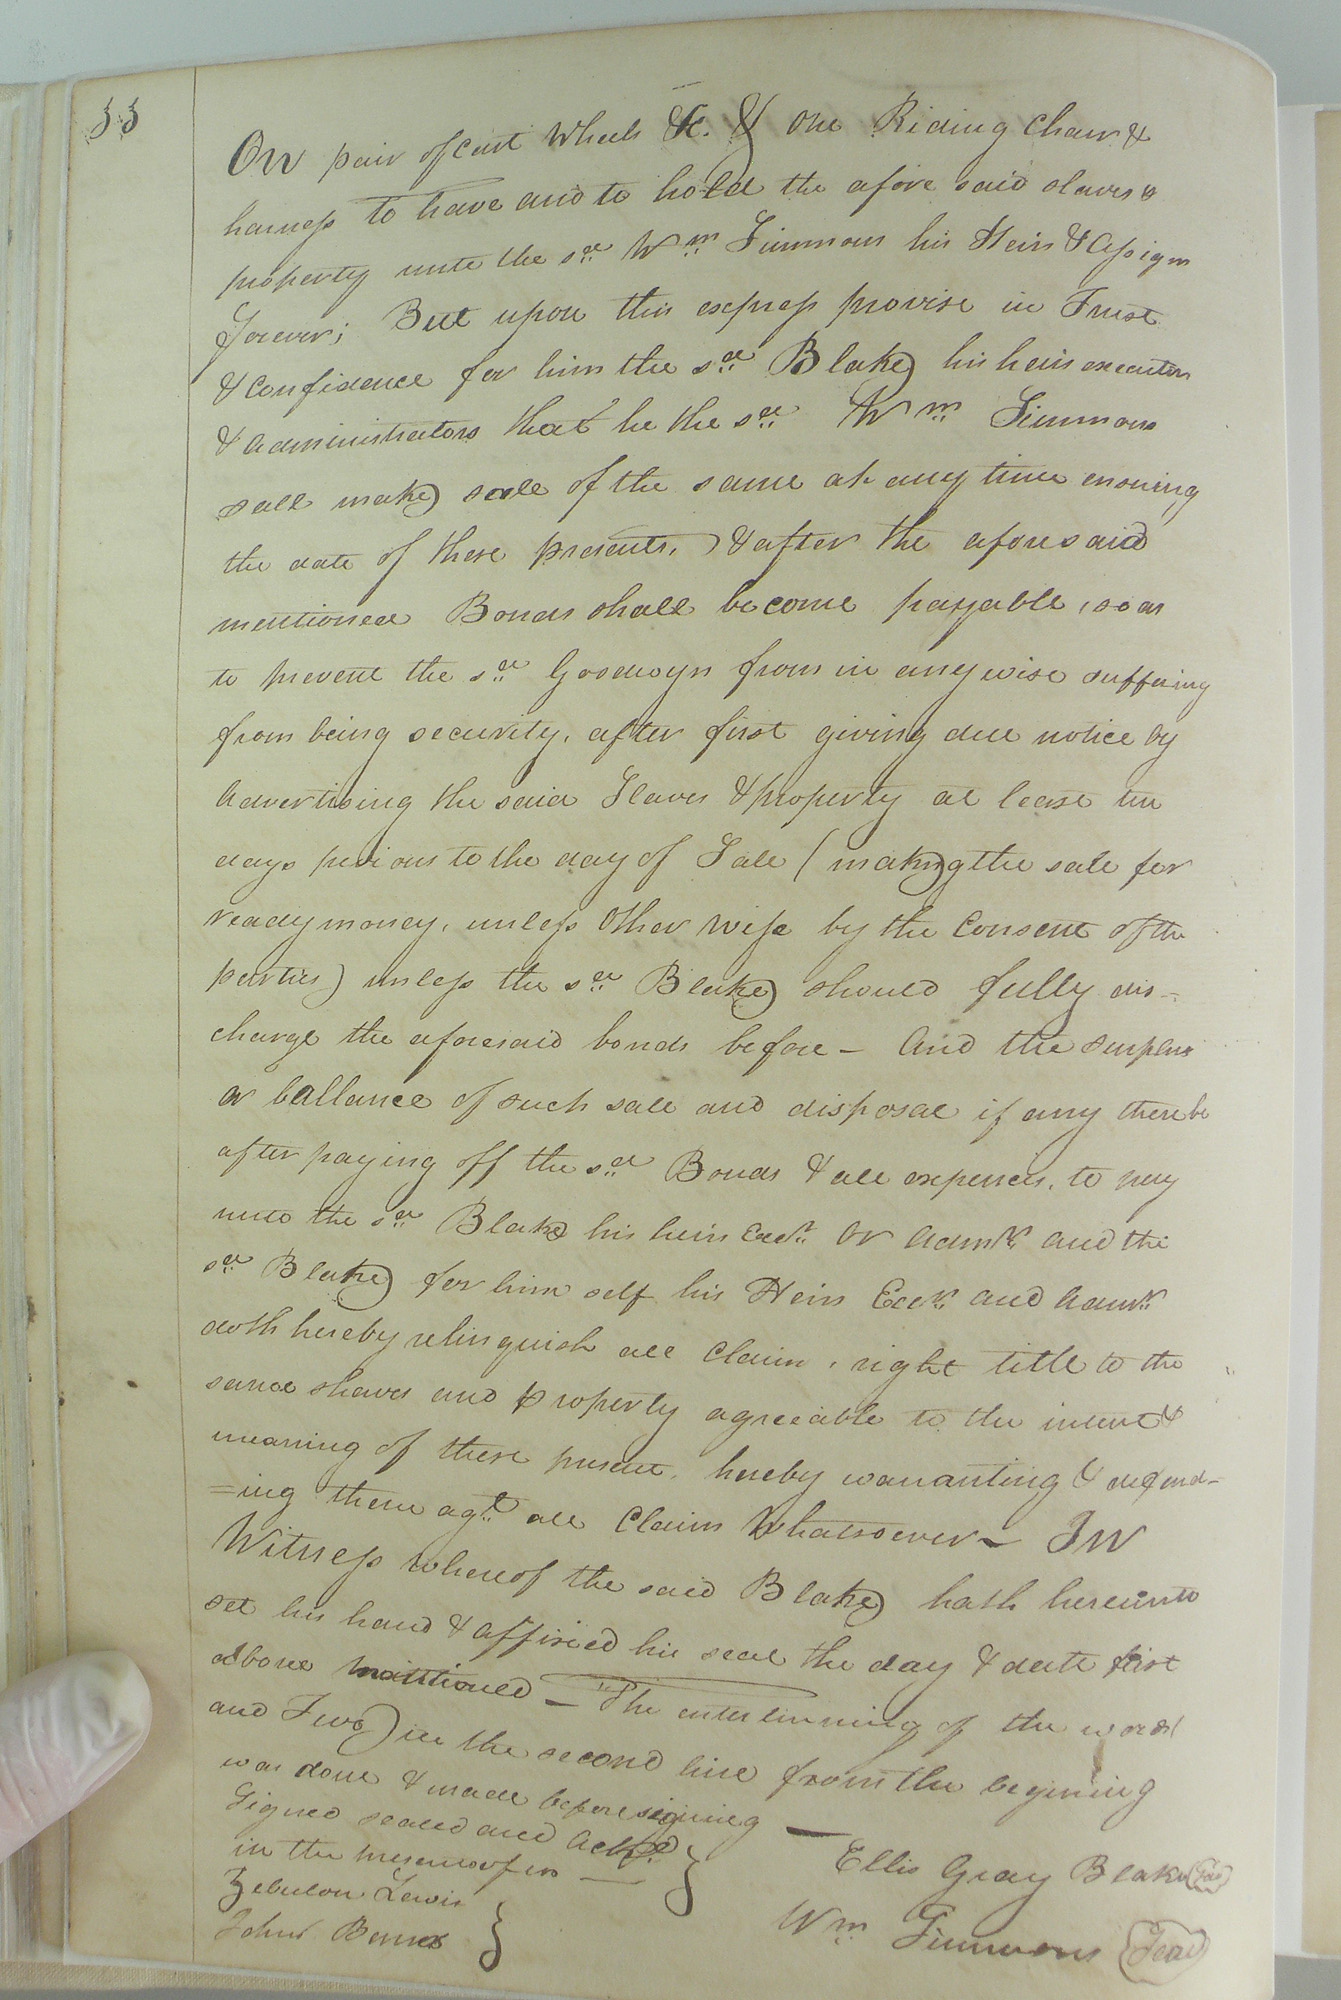 33
One pair of Cart Wheels &c. & One Riding Chair &
harness to have and to hold the afore said slaves &
property unto the sd. Wm. Simmons his Heirs & Assigns
forever; But upon this express proviso in Trust
& Confidence for him the sd. Blake his heirs executors
& administrators that he the sd. Wm. Simmons
sall make sale of the same at any time ensuing
the date of these presents, & after the aforesaid
mentioned Bonds shall become payable, so as
to prevent the sd. Goodwyn from in any wise suffering
from being security, after first giving due notice by
Advertising the said Slaves & property at least ten
days previous to the day of Sale (making the sale for
ready money, unless Other wise by the Consent of the
parties) unless the sd. Blake should fully dis-
charge the aforesaid bonds before - And the surplus
or ballance of such sale and disposal if any there be
after paying off the sd. Bonds & all expences, to pay
unto the sd. Blake his heirs Exrs. Or Admrs. and the
sd. Blake for him self his Heirs Exrs. and Admrs.
doth hereby relinquish all Claim, right title to the
same slaves and property agreeable to the intent &
meaning of these present, hereby warranting & defend-
=ing them agt. all Claim Whatsoever - In
Witness whereof the said Blake hath hereunto
set his hand & affixed his seal the day & date first
above mentioned - The enterlinning of the words
and Two) in the second line from the begining
was done & made before signing -
Signed sealed and Ackd.
in the presence of us -
Ellis Gray Blake (Seal)
Zebulon Lewis
Wm. Simmons (Seal)
John Barnes